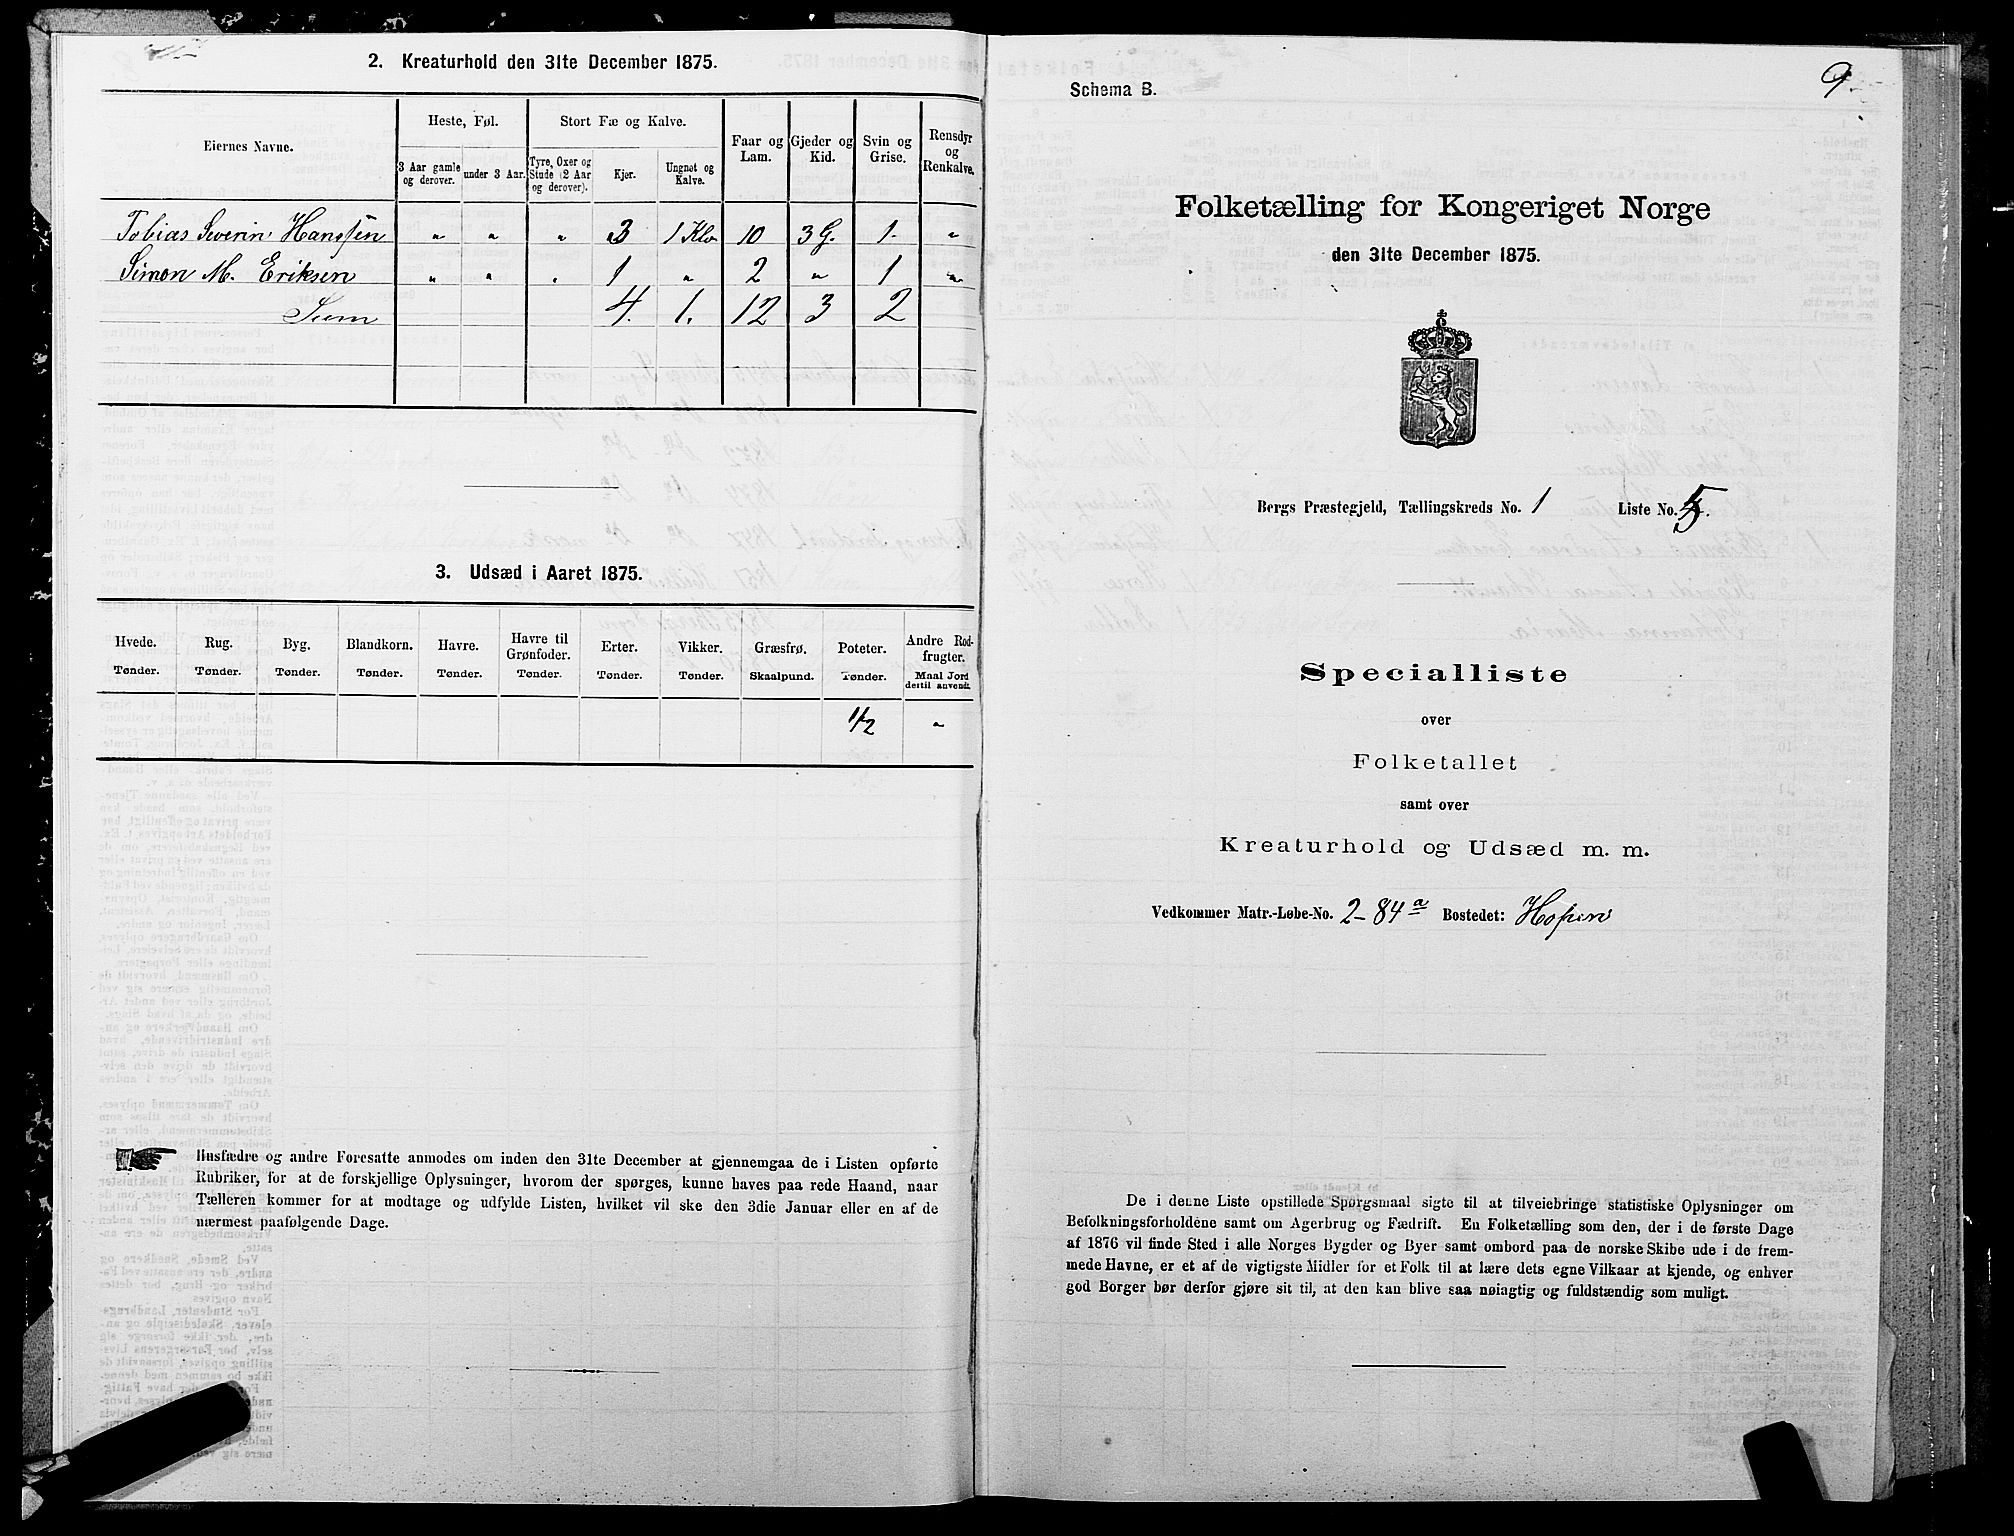 2. Kreaturhold den 31te December 1875.
Eiernes Navne.
Heste, Føl.
Stort Fæ og Kalve.
Faar og Lam.
Gjeder og Kid.
Svin og Grise.
Rensdyr og Renkalve.
3 Aar gamle og derover.
under 3 Aar.
Tyre, Oxer og Stude (2 Aar og derover).
Kjer.
Ungnøt og Kalve.
Tobias Severin Hanssen " " " 3 1 Klv 10 3 G. 1. "
Simon M. Eriksen " " " 1 " 2 " 1 "
Sum 4. 1. 12 3 2
3. Udsæd i Aaret 1875.
Hvede. Tønder.
Rug. Tønder.
Byg. Tønder.
Blandkorn. Tønder.
Havre. Tønder.
Havre til Grønfoder. Tønder.
Erter. Tønder.
Vikker. Tønder.
Græsfrø. Skaalpund.
Poteter. Tønder.
Andre Rodfrugter. Maal Jord dertil anvendt.
1/2 "
Husfædre og andre Foresatte anmodes om inden den 31te December at gjennemgaa de i Listen opførte
Rubriker, for at de forskjellige Oplysninger, hvorom der spørges, kunne haves paa rede Haand, naar
Tælleren kommer for at modtage og udfylde Listen, hvilket vil ske den 3die Januar eller en af de
nærmest paafølgende Dage.
9.
Schema B.
Folketælling for Kongeriget Norge
den 31te December 1875.
Bergs Præstegjeld, Tællingskreds No. 1 Liste No. 5.
Specialliste
over
Folketallet
samt over
Kreaturhold og Udsæd m. m.
Vedkommer Matr.-Løbe-No. 2-84a Bostedet: Hopen
De i denne Liste opstillede Spørgsmaal sigte til at tilveiebringe statistiske Oplysninger om
Befolkningsforholdene samt om Agerbrug og Fædrift. En Folketælling som den, der i de første Dage
af 1876 vil finde Sted i alle Norges Bygder og Byer samt ombord paa de norske Skibe ude i de frem-
mede Havne, er et af de vigtigste Midler for et Folk til at lære dets egne Vilkaar at kjende, og enhver
god Borger bør derfor gjøre sit til, at den kan blive saa nøiagtig og fuldstændig som muligt.